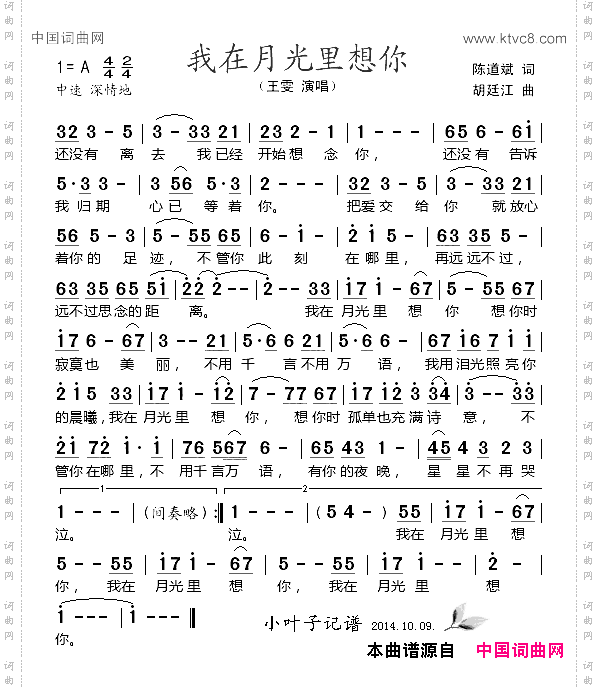 中国词曲网 www.ktvc8.com
我在月光里想你
1=A 4/4 2/4
陈道斌 词
中速 深情地
（王雯 演唱）
胡廷江 曲
32 3 - 5 | 3 - 33 21 | 23 2 - - | 65 6 - 6i |
还没有 离 去 我已经 开始想 念 你， 还没有 告诉
5·3 3 - | 3 56 5·3 | 2 - - - | 23·3 5 23 | 3 - 33 21 |
我 归期 心已 等着 你。 把爱交 给 你 就放心
56 5 - 3 | 5 - 55 65 | 6 - i - | 2 i 5 - | 63 35 5 - |
着你的 足 迹， 不管你 此 刻 在 哪里， 再远远不过，
63 35 65 5i | 22 2 - - | 2 - - 33 | i7 i - 67 | 5 - - 55 |
远不过思念的距 离。 我在 月光里 想 你 想你时
i7 6 - 67 | 3 - - 21 | 5·6 6 21 | 5·6 5 - | 55 67 i i |
寂寞也 美 丽， 不用 千 言不用 万 语， 我用泪光照亮你
2 i 5 33 | i7 i - i2 | 7 - 77 67 | i7 i2 3 34 | 3 - - 33 |
的晨曦，我在 月光里 想 你， 想你时 孤单也充满诗 意， 不
2i 72 i·i | 76 567 5 - | 65 43 5 - | 45 3 2 3 |
管你在哪里，不 用千言万 语， 有你的夜 晚， 星 星 不 再 哭
1 - - - | （间奏略） :| 1 - - - | （5 4 - ） 55 | i7 i - 67 |
泣。 泣。 我在 月光里 想
5 - - 55 | i7 i - 67 | 5 - - 55 | i7 i - 67 |
你， 我在 月光里 想 你， 我在 月光里 想
i - - - | i - - - ||
你。
小叶子记谱 2014.10.09.
本曲谱源自 中国词曲网
词曲网